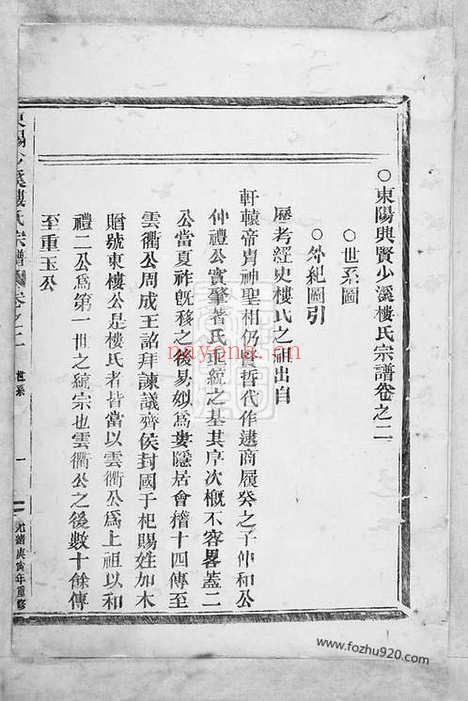 ○東陽興賢少溪樓氏宗譜卷之二
○世系圖
○外紀圖引
歷考經史樓氏之神出自
軒轅帝胄神聖相仍賢哲代作逮商履癸之子仲和公
仲禮公實肇著氏垂統之基其序次概不容畧蓋二
公當夏祚旣移之後易姒爲婁隱居會稽十四傳至
雲衢公周成王詔拜諫議齊侯封國于杞賜姓加木
贈號東樓公是樓氏者皆當以雲衢公爲上祖以和
禮二公爲第一世之統宗也雲衢公之後數十餘傳
至重玉公
東陽少溪樓氏宗譜 卷之二 世系 一 光緒庚寅年重修
nayona.cn
www.fozhu920.com